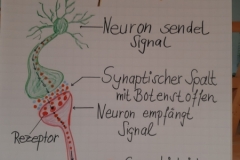 Neuron sendet
Signal
Synaptischer Spalt
mit Botenstoffen
Neuron empfängt
Signal
Rezeptor